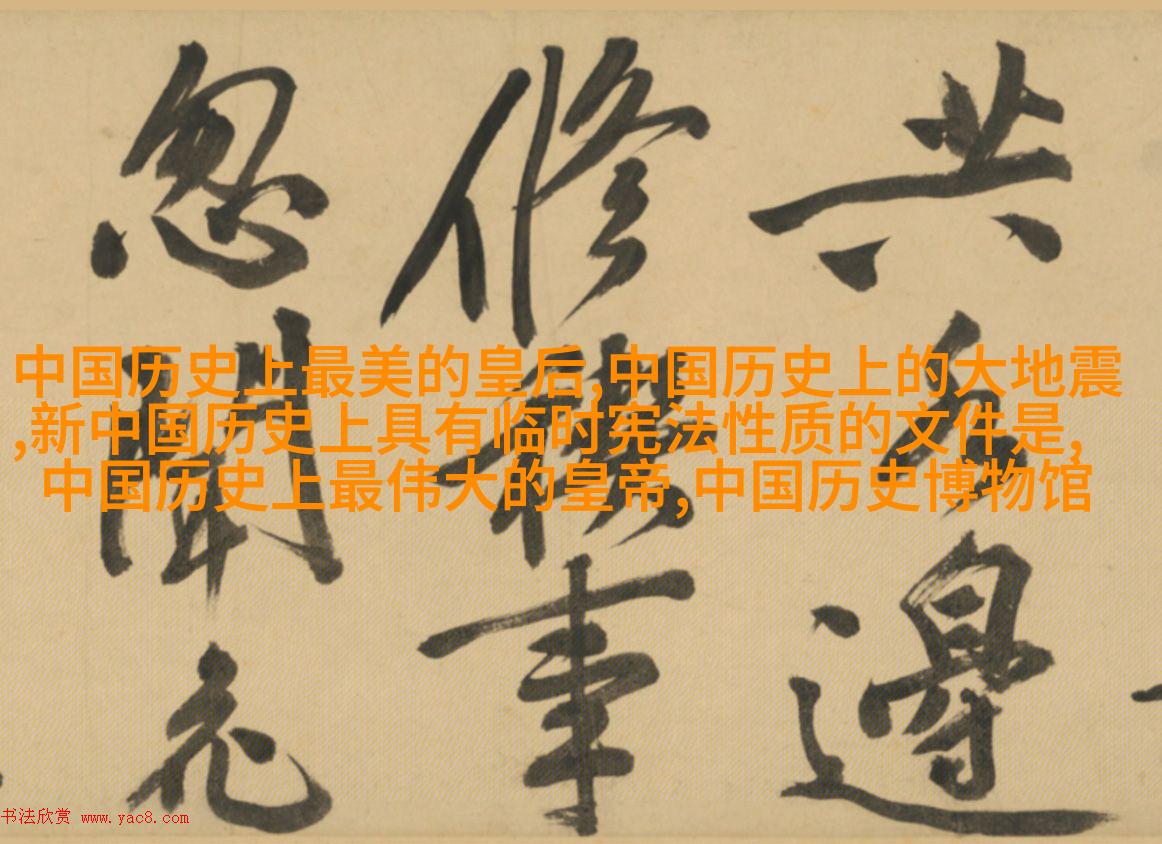 共邊
修禊事
忽聞
中国历史上最美的皇后,中国历史上的大地震
,新中国历史上具有临时宪法性质的文件是,
中国历史上最伟大的皇帝,中国历史博物馆
书法欣赏 www.yac8.com